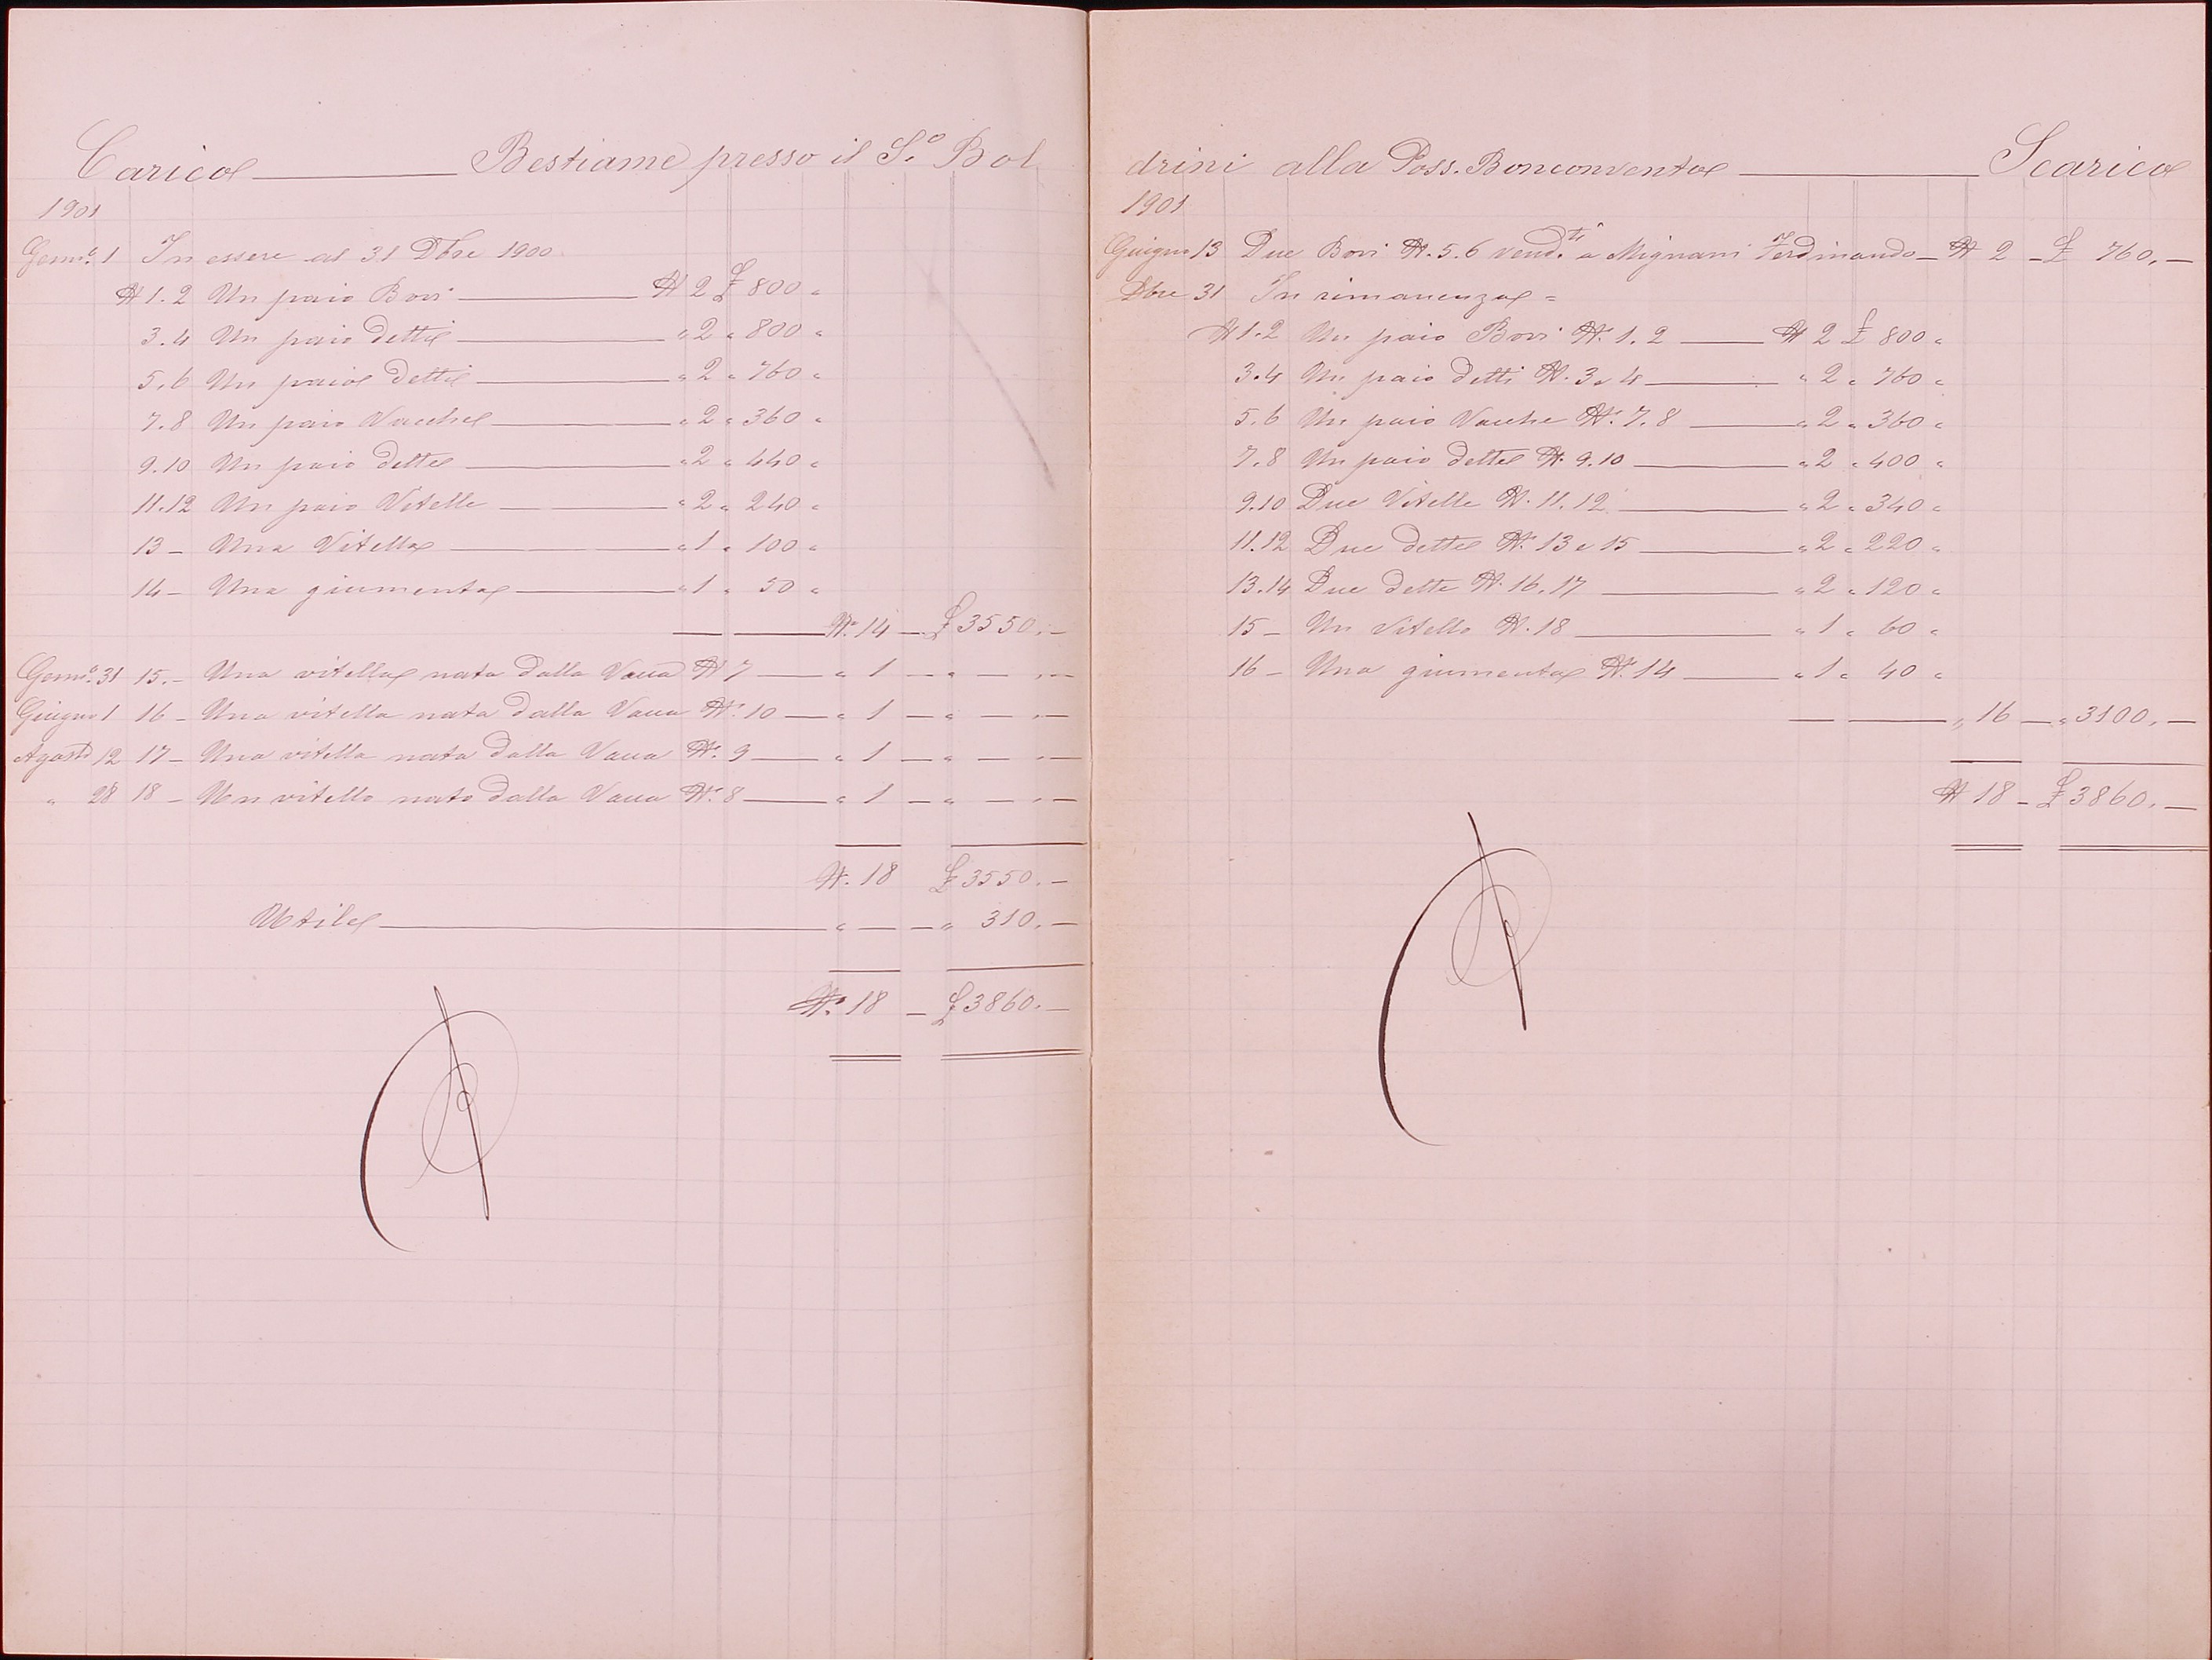 Carico ——— Bestiame presso il S.º Bol
1901
Genn.º 1 In essere al 31 Dbre 1900
N 1.2 Un paio Bovi — N 2 £ 800 "
3.4 Un paio detti — " 2 " 800 "
5.6 Un paio detti — " 2 " 760 "
7.8 Un paio Vacche — " 2 " 360 "
9.10 Un paio dette — " 2 " 440 "
11.12 Un paio Vitelle — " 2 " 240 "
13 — Una Vitella — " 1 " 100 "
14 — Una giumenta — " 1 " 50 "
— — N. 14 — £ 3550. —
Genn.º 31 15. — Una vitella nata dalla Vacca N 7 — " 1 — " — " —
Giugno 1 16 — Una vitella nata dalla Vacca N. 10 — " 1 — " — " —
Agosto 12 17 — Una vitella nata dalla Vacca N. 9 — " 1 — " — " —
" 28 18 — Un vitello nato dalla Vacca N. 8 — " 1 — " — " —
N. 18 £ 3550. —
Utile — " — — " 310. —
N. 18 — £ 3860. —
drini alla Poss. Bonconvento ——— Scarico
1901
Giugno 13 Due Bovi N. 5.6 vend.ti a Mignani Ferdinando — N 2 — £ 760. —
Dbre 31 In rimanenza =
N 1.2 Un paio Bovi N. 1.2 — N 2 £ 800 "
3.4 Un paio detti N. 3 e 4 — " 2 " 760 "
5.6 Un paio Vacche N. 7.8 — " 2 " 360 "
7.8 Un paio dette N. 9.10 — " 2 " 400 "
9.10 Due Vitelle N. 11.12 — " 2 " 340 "
11.12 Due dette N. 13 e 15 — " 2 " 220 "
13.14 Due dette N. 16.17 — " 2 " 120 "
15 — Un Vitello N. 18 — " 1 " 60 "
16 — Una giumenta N. 14 — " 1 " 40 "
— — " 16 — " 3100. —
N 18 — £ 3860. —